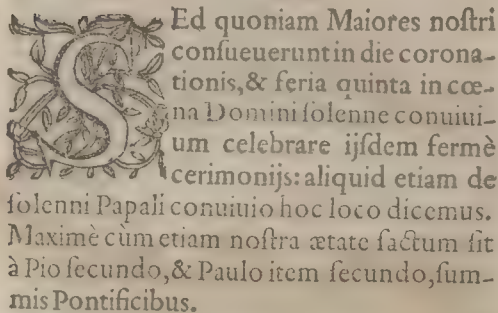 SEd quoniam Maiores noſtri
conſueuerunt in die corona-
tionis, & feria quinta in cœ-
na Domini ſolenne conuiui-
um celebrare ijſdem fermè
cerimonijs: aliquid etiam de
ſolenni Papali conuiuio hoc loco dicemus.
Maximè cùm etiam noſtra ætate factum ſit
à Pio ſecundo, & Paulo item ſecundo, ſum-
mis Pontificibus.